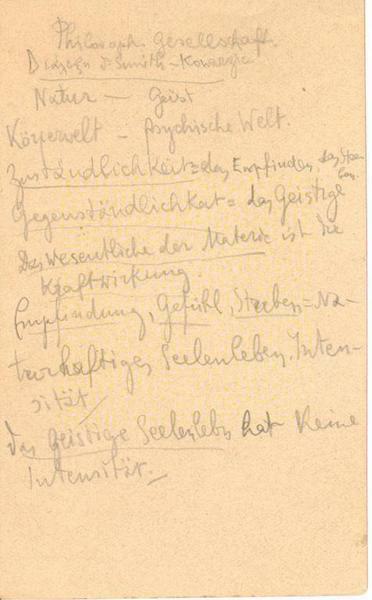 Philosoph. Gesellschaft.
Natur — Geist
Körperwelt – Psychische Welt.
Zuständlichkeit = das Empfinden, das
Gegenständlichkeit = das Geistige
Das Wesentliche der Materie ist die
Kraftwirkung.
Empfindung, Gefühl, Streben = Na-
turhaftiges Seelenleben. Inten-
sität
Das geistige Seelenleben hat keine
Intensität.